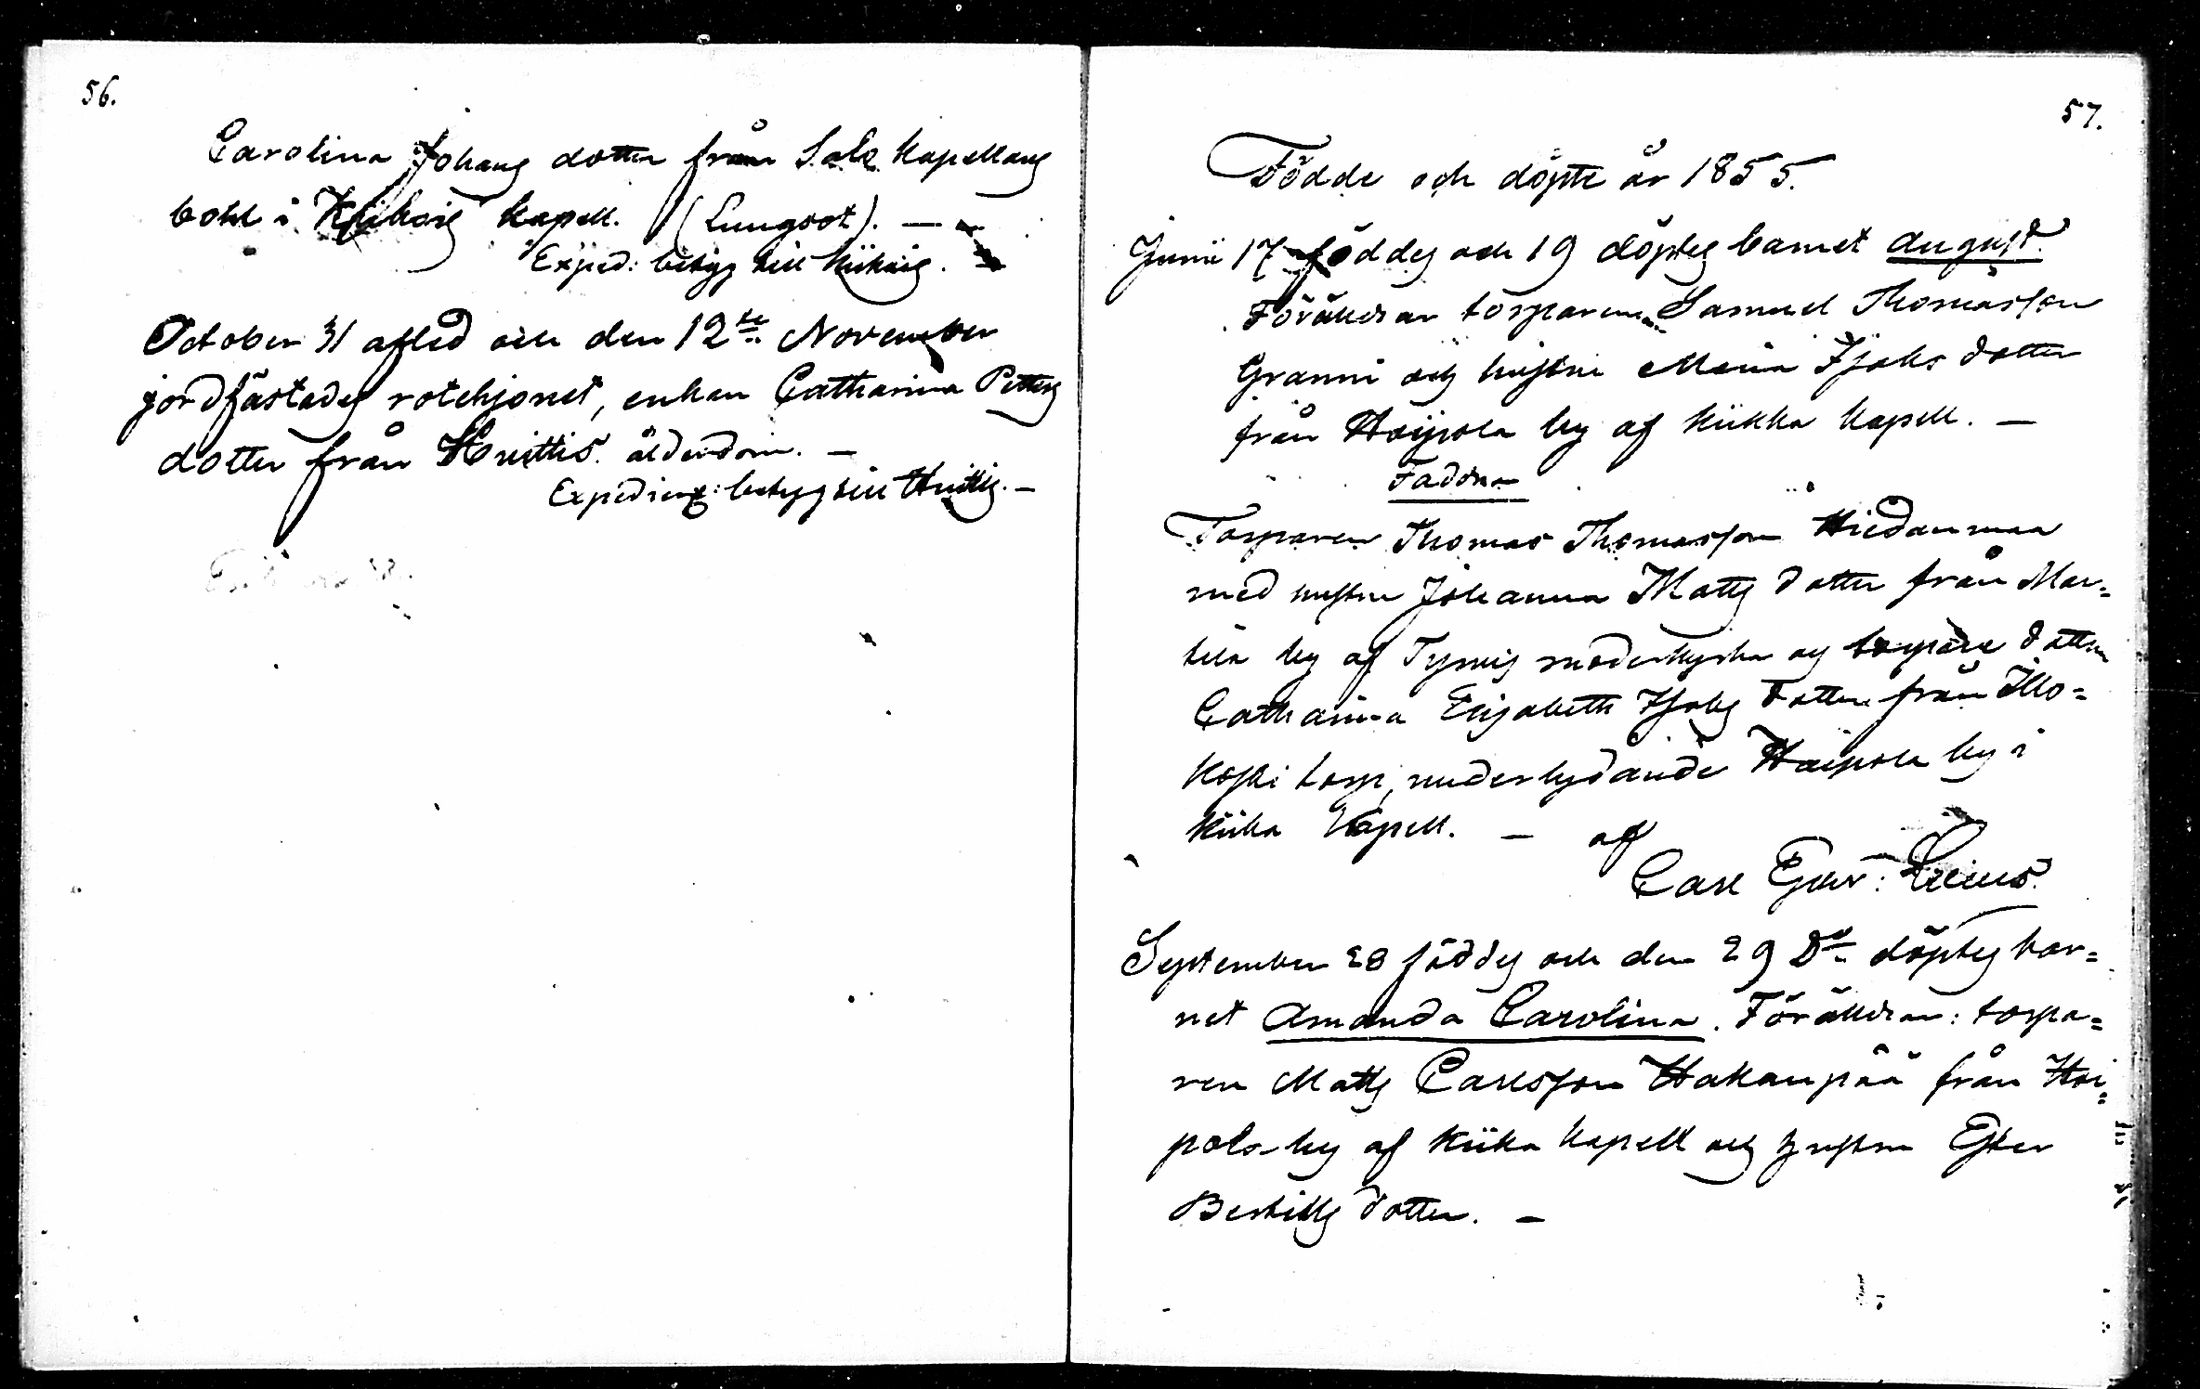 56.
Carolina Johans dotter från Sala Kapellans
bohl i Kiikois Kapell. (Lungsot). —
Exped: betyg till Kiikois.
October 31 afled och den 12te November
jordfästades rotehjonet, enkan Catharina Petters
dotter från Huittis. ålderdom. —
Expedierz: betyg till Huittis. —
57.
Födde och döpte år 1855.
Junii 17 föddes och 19 döptes barnet August.
Föräldrar torparen Samuel Thomasson
Granni och hustru Maria Isaks dotter
från Haipola by af Kiikka Kapell. —
Faddrar
Torparen Thomas Thomasson Hiedanmaa
med hustru Johanna Matts dotter från Mar=
tila by af Tyrvis moderkyrka och torpare dottern
Catharina Elisabeth Isaks dotter från Illo=
koski torp, underlydande Haipola by i
Kiika Kapell. — af
Carl Gust:
September 28 föddes och den 29 Do döptes bar=
net Amanda Carolina. Föräldrar: torpa=
ren Matts Carlsson Hakanpää från Hai=
pola by af Kiika Kapell och hustru Ester
Bertills dotter. —